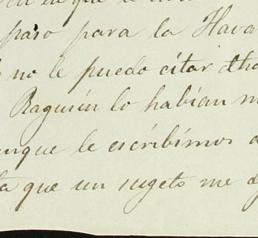 paso para la Hava
no le puedo citar dho
Raguin lo habian m
nque le escribimos a
que un sugeto me d